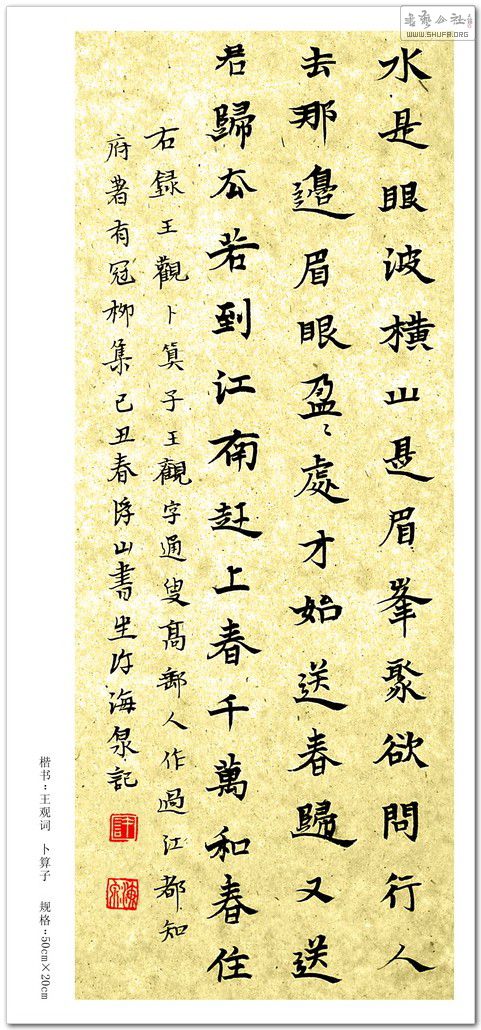 書藝公社
WWW.SHUFA.ORG
水是眼波橫山是眉峯聚欲問行人
去那邊眉眼盈〻處才始送春歸又送
君歸去若到江南赶上春千萬和春住
右録王觀卜算子王觀字通叟高郵人作過江都知
府著有冠柳集己丑春浮山書生許海泉記
楷书：王观词　卜算子　规格：50cm×20cm